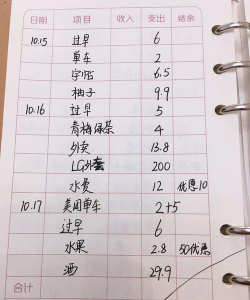 日期 项目 收入 支出 结余
10.15 过早 6
单车 2
字帖 6.5
柚子 9.9
10.16 过早 5
青梅绿茶 4
外卖 13.8
LG外套 200
水费 12 优惠10
10.17 美团单车 2+5
过早 6
水果 2.8 50优惠
酒 29.9
合计